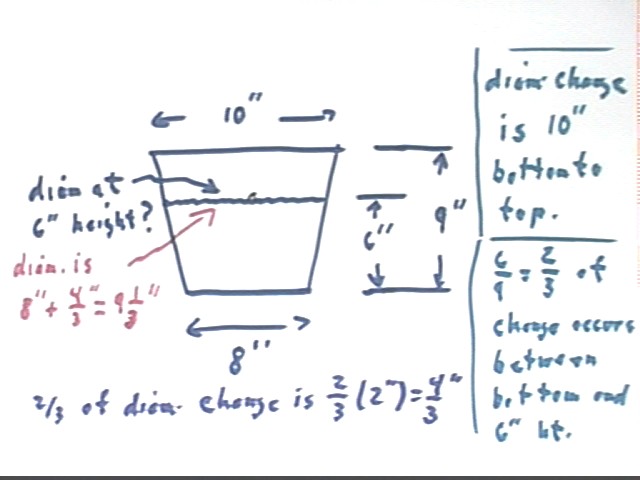 10"
diam at
6" height?
diam. is
8" + 4/3" = 9 1/3"
6"
9"
8"
2/3 of diam. change is 2/3 (2") = 4/3"
diam. change
is 10"
bottom to
top.
6/9 = 2/3 of
change occurs
between
bottom and
6" ht.